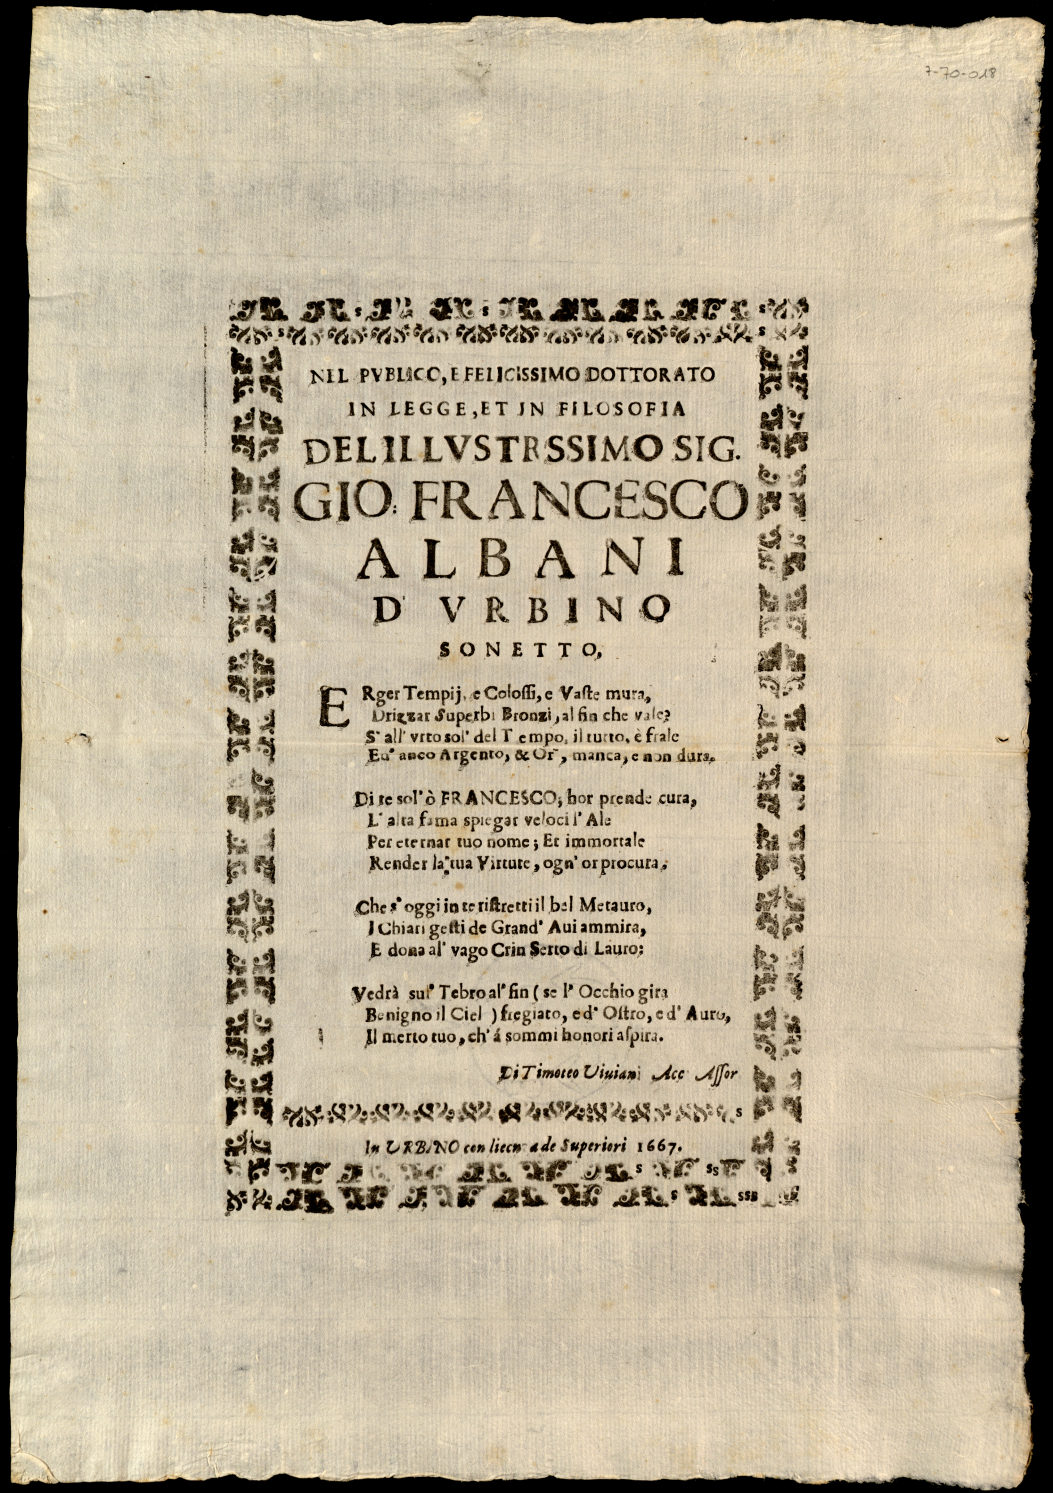 7-70-018
NEL PVBLICO, E FELICISSIMO DOTTORATO
IN LEGGE, ET IN FILOSOFIA
DEL ILLVSTRSSIMO SIG.
GIO: FRANCESCO
ALBANI
D' VRBINO
SONETTO,
ERger Tempij, e Colossi, e Vaste mura,
Drizzar Superbi Bronzi, al fin che vale?
S' all' vrto sol' del Tempo, il tutto, è frale
Ed' anco Argento, & Or', manca, e non dura.
Di te sol' ò FRANCESCO; hor prende cura,
L' alta fama spiegar veloci l' Ale
Per eternar tuo nome; Et immortale
Render la tua Virtute, ogn' or procura.
Che s' oggi in te ristretti il bel Metauro,
I Chiari gesti de Grand' Aui ammira,
E dona al' vago Crin Serto di Lauro;
Vedrà sul' Tebro al' fin (se l' Occhio gira
Benigno il Ciel ) fregiato, ed' Ostro, ed' Auro,
Il merto tuo, ch' á sommi honori aspira.
Di Timoteo Viuiani Acc Assor
In VRBINO con licen a de Superiori 1667.